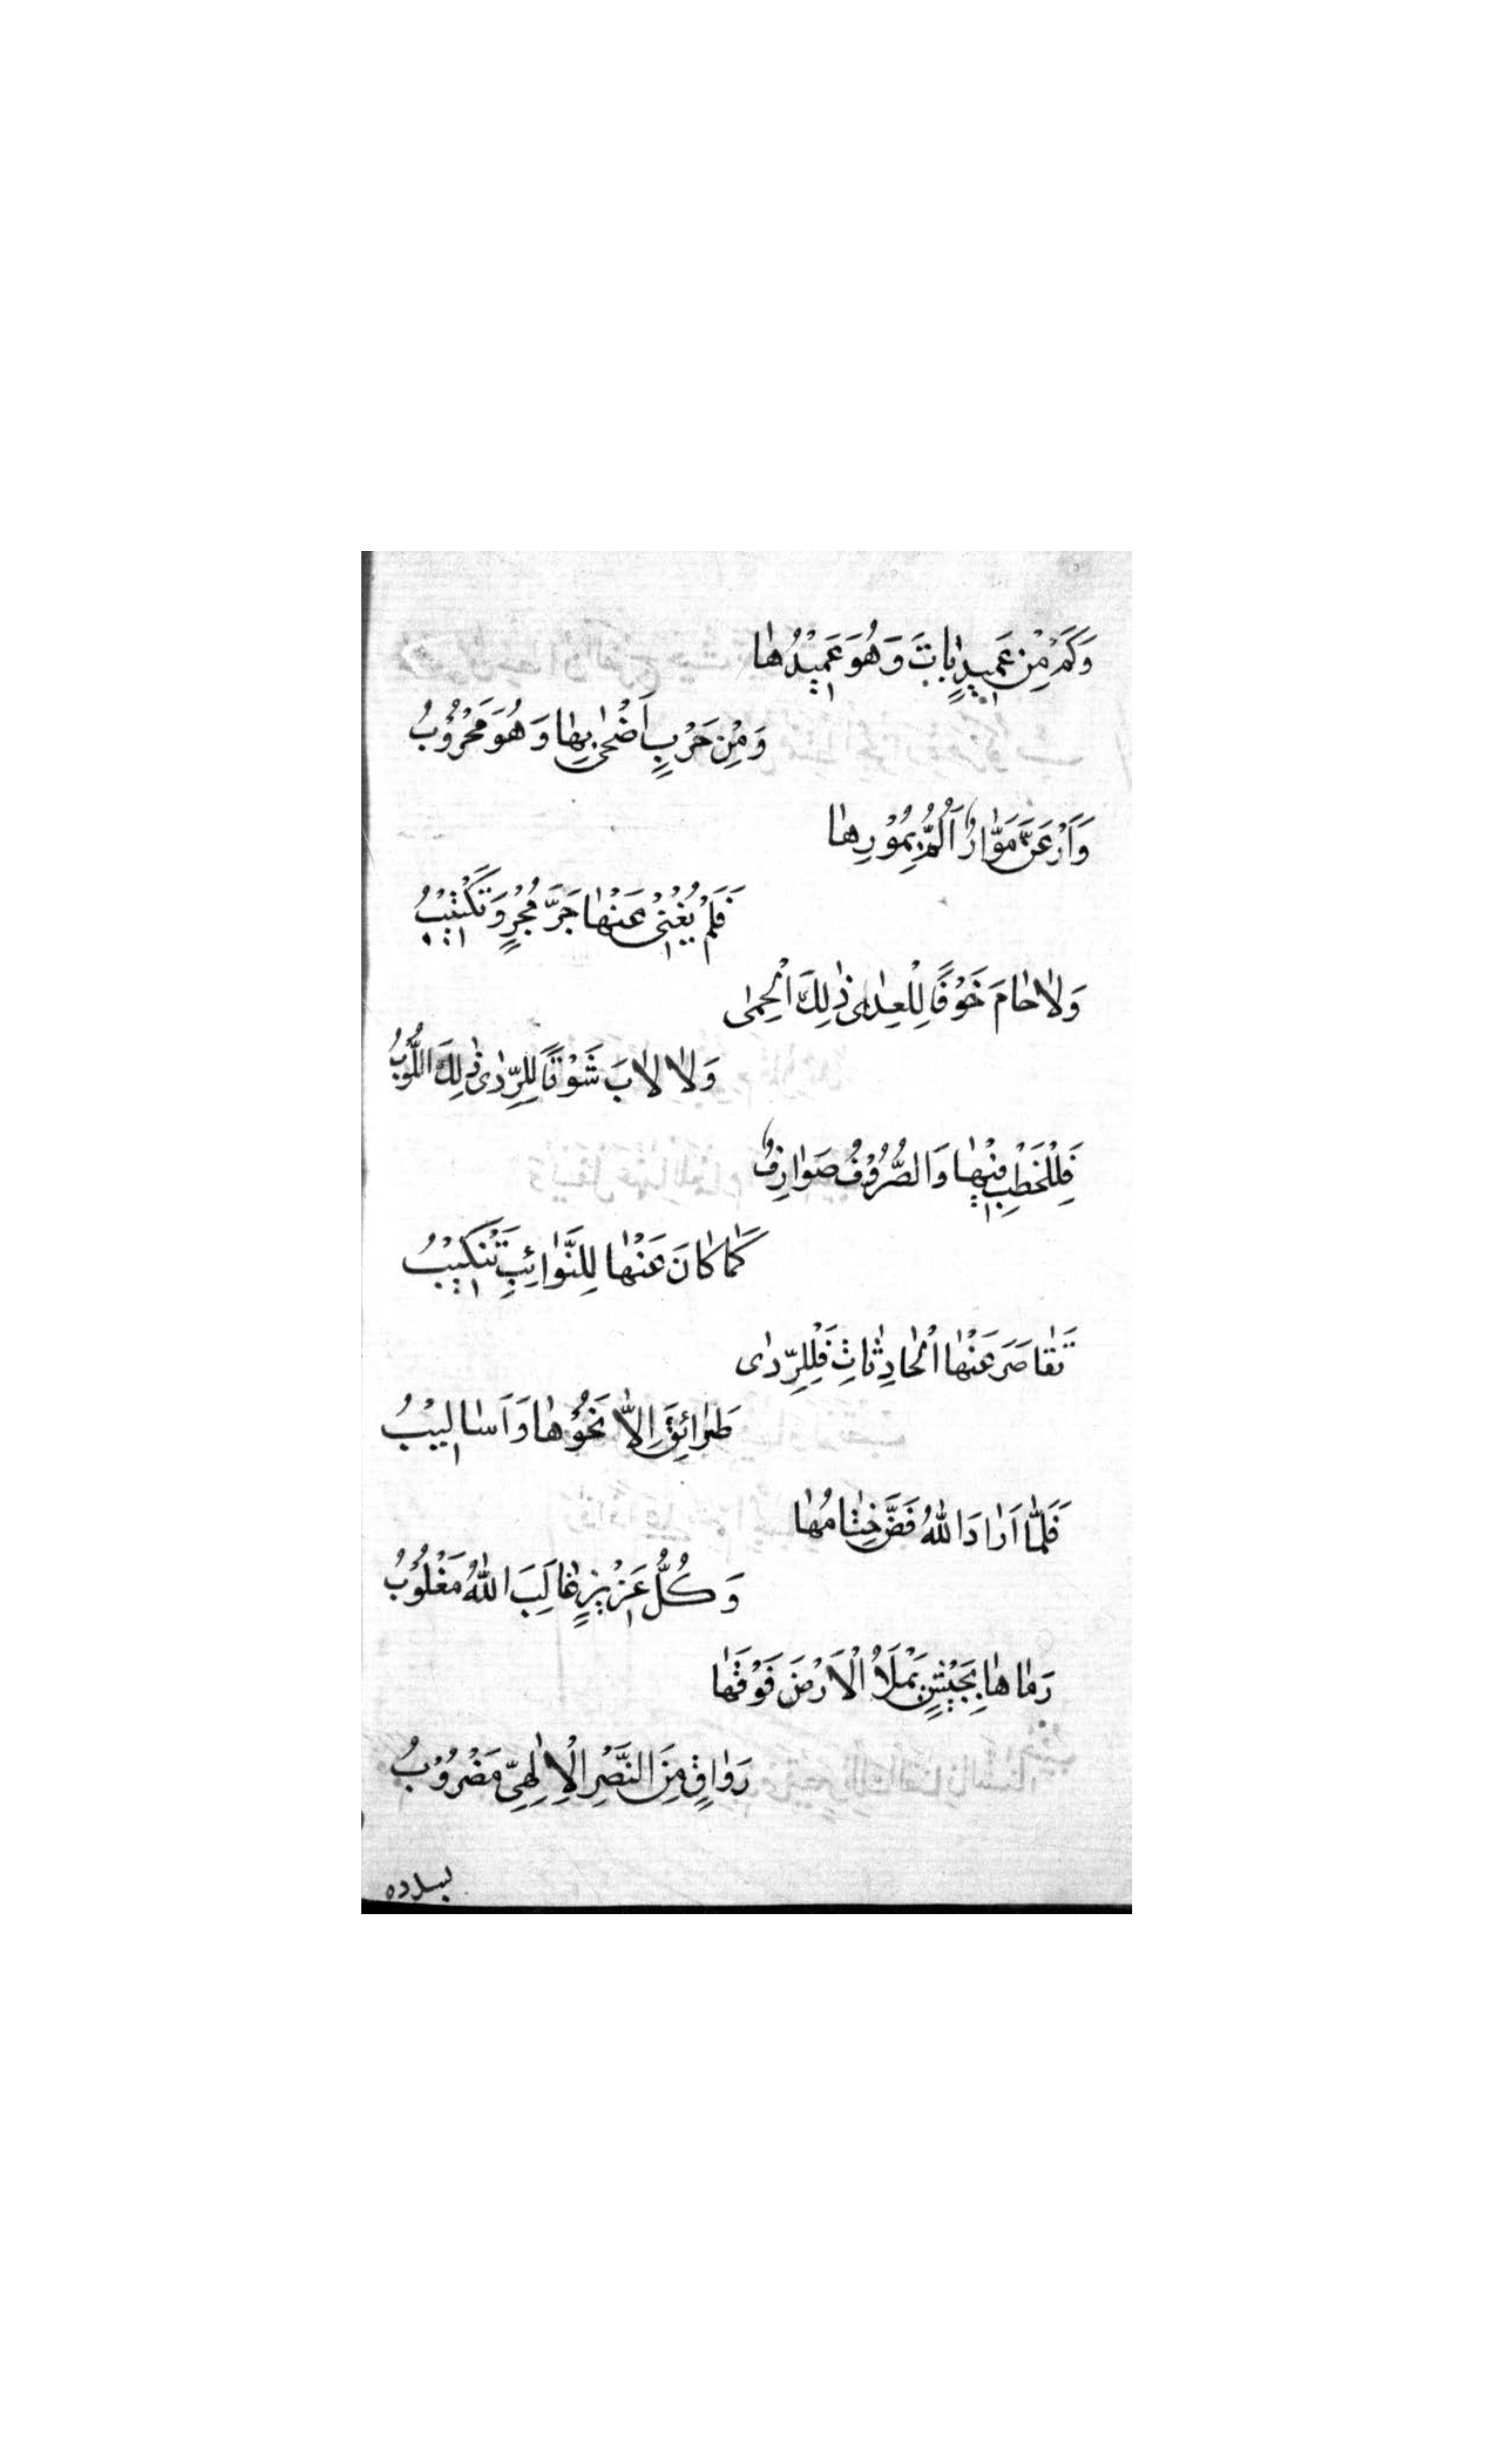 وَكَمْ مِنْ عَمِيدٍ بَاتَ وَهُوَ عَمِيْدُهَا
وَمِنْ حَرْبٍ اَضْحٰى بِهَا وَهُوَ مَحْرُوْبُ
وَاَرْعَنَّ مَوَّارٌ اَلَمَّ بِمُوْرِهَا
فَلَمْ يُغْنِىْ عَنْهَا جَرَّ مُجْرٍ وَتَكْتِيْبُ
وَلَا حَامَ خَوْفًا لِلْعِدٰى ذٰلِكَ الْحِمٰى
وَلَا لَابَ شَوْقًا لِلرِّدٰى ذٰلِكَ اللُّوْبُ
فَلِلْخَطْبِ فِيْهَا وَالصُّرُوْفُ صَوَارِفُ
كَمَا كَانَ عَنْهَا لِلنَّوَائِبِ تَنْكِيْبُ
تَقَاصَرَ عَنْهَا الْحَادِثَاتِ فَلِلرِّدٰى
طَرَائِقَ اِلَّا نَحْوُهَا وَاَسَالِيْبُ
فَلَمَّا اَرَادَ اللهُ فَضَّ خِتَامُهَا
وَكُلُّ عَزِيْزٍ غَالَبَ اللهُ مَغْلُوْبُ
رَمَاهَا بِجَيْشٍ يَمْلَاُ الْاَرْضَ فَوْقَهَا
رَوَاقٍ مِنَ النَّصْرِ الْاِلٰهِىِّ مَضْرُوْبُ